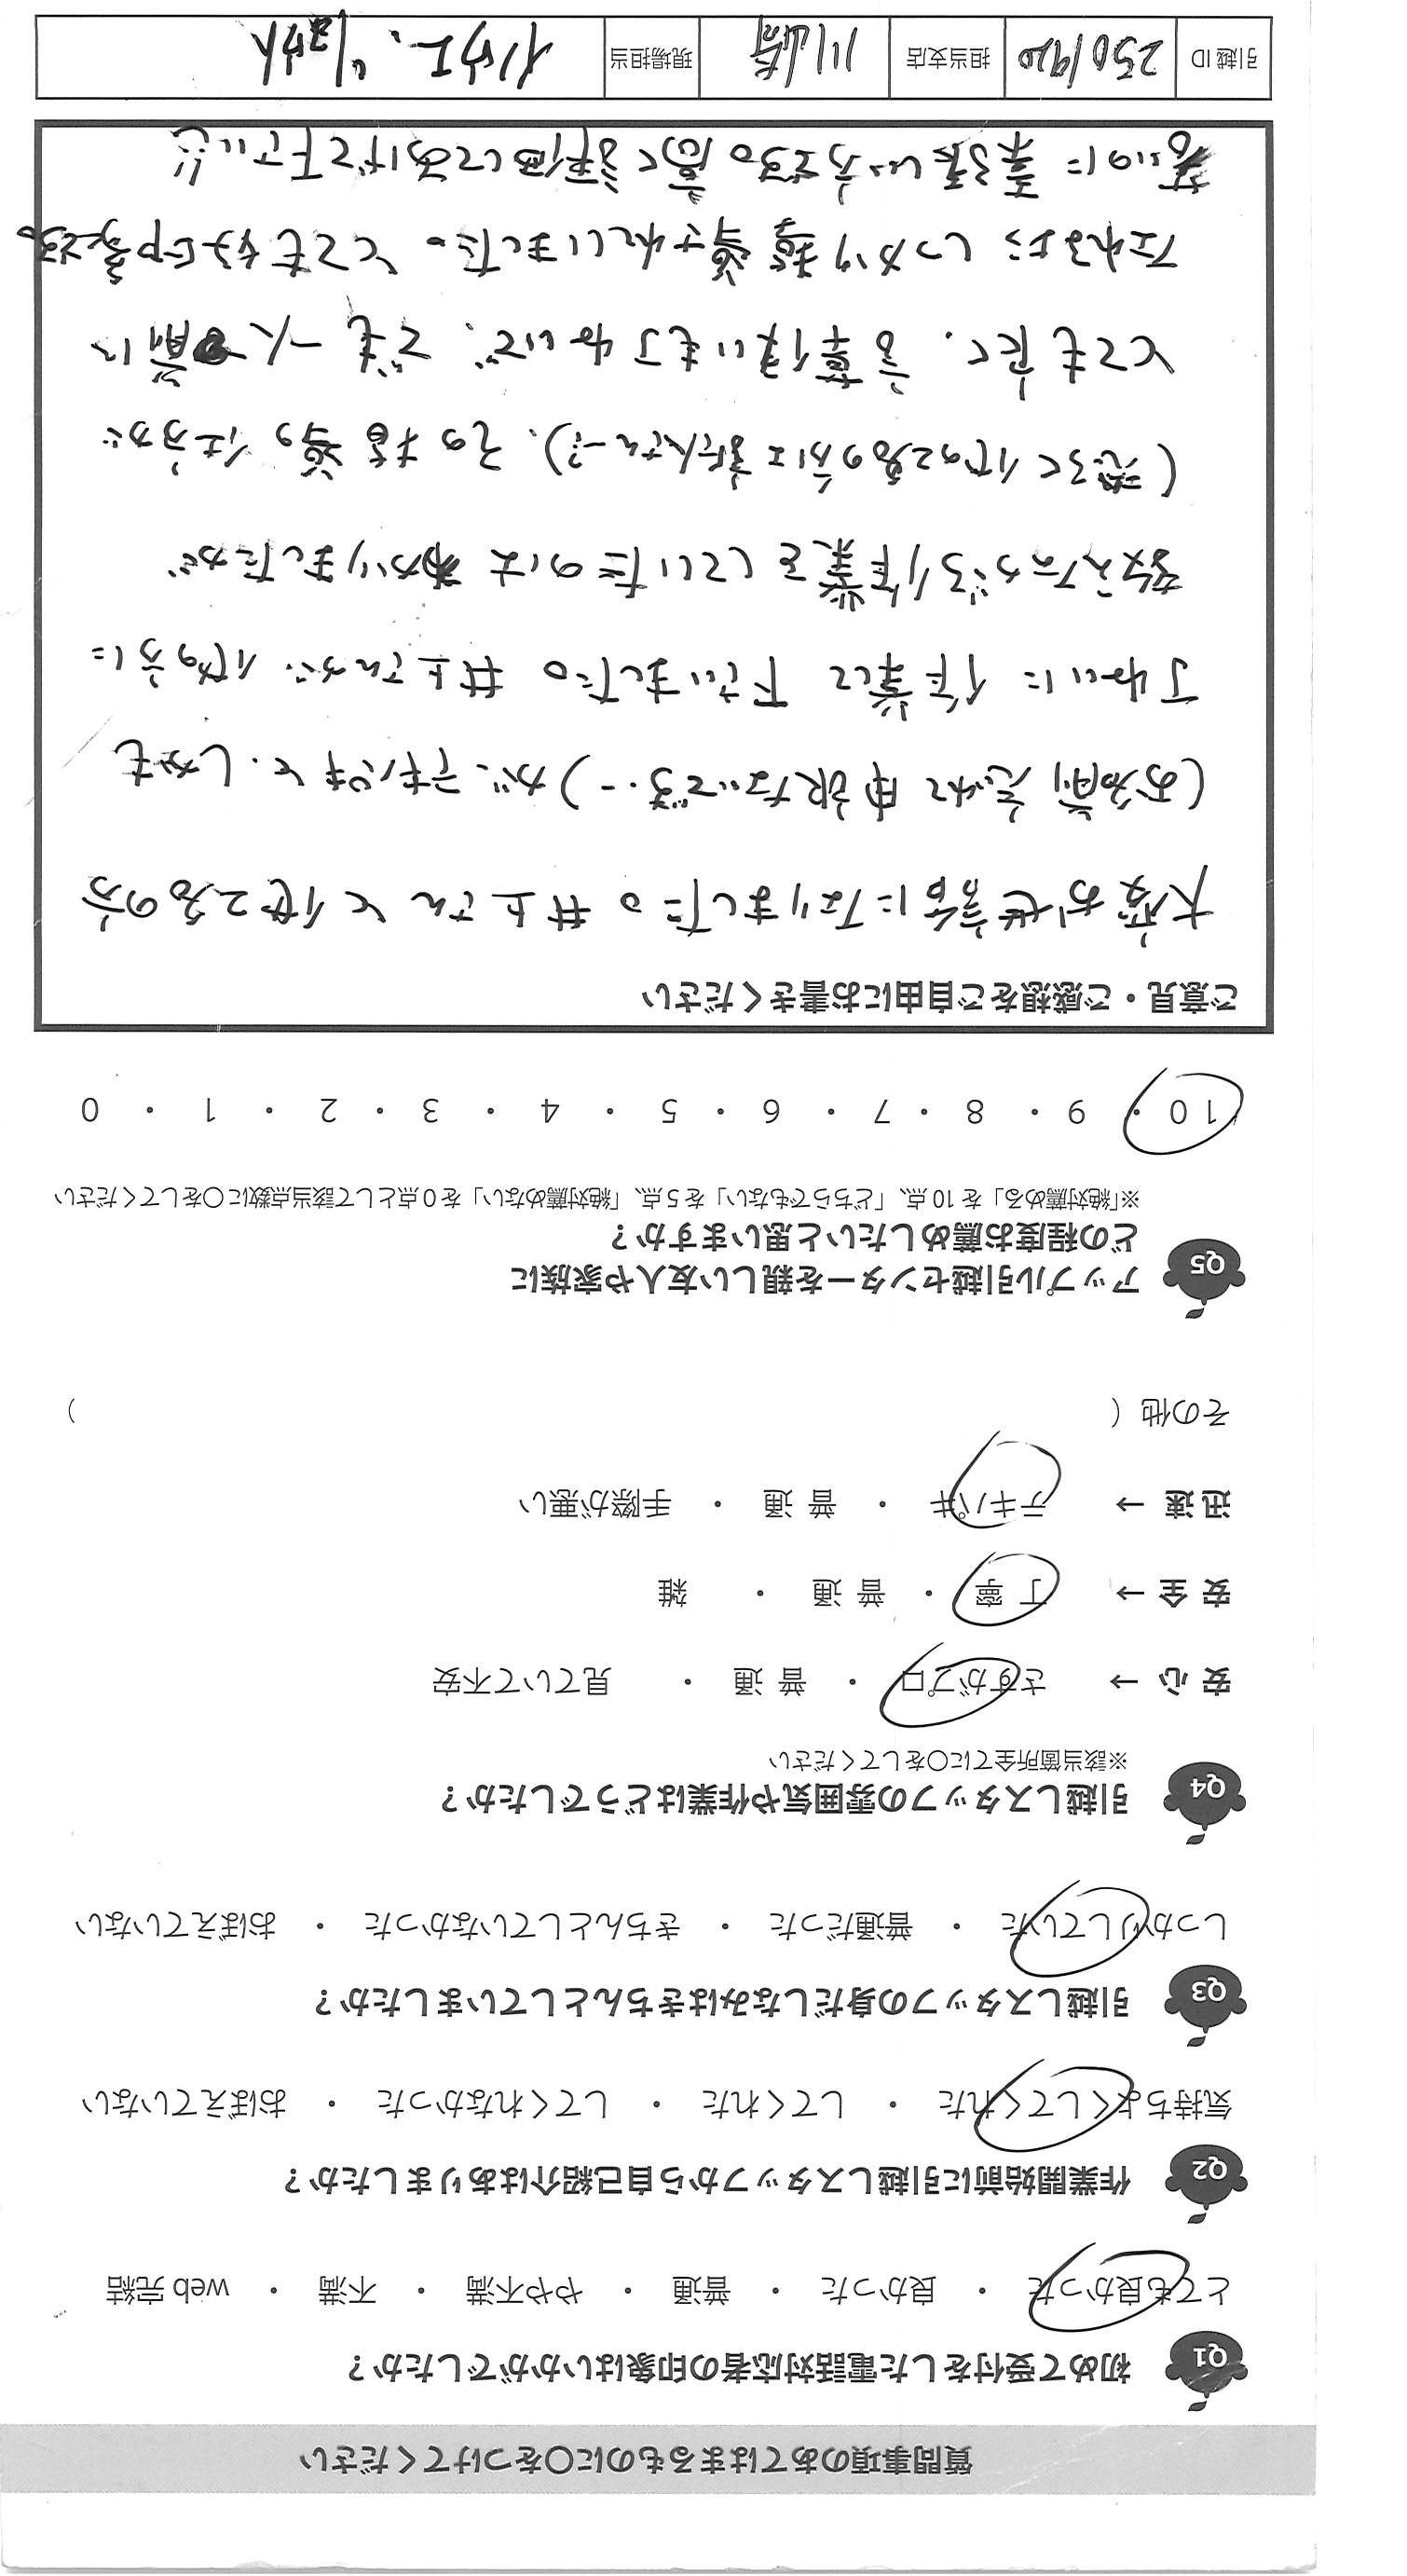 質問事項のあてはまるものに〇をつけてください
Q1 初めて受付をした電話対応者の印象はいかがでしたか？
とても良かった ・ 良かった ・ 普通 ・ やや不満 ・ 不満 ・ web 完結
Q2 作業開始前に引越しスタッフから自己紹介はありましたか？
気持ちよくしてくれた ・ してくれた ・ してくれなかった ・ おぼえていない
Q3 引越しスタッフの身だしなみはきちんとしていましたか？
しっかりしていた ・ 普通だった ・ きちんとしていなかった ・ おぼえていない
Q4 引越しスタッフの雰囲気や作業はどうでしたか？
※該当箇所全てに〇をしてください
安 心 → さすがプロ ・ 普 通 ・ 見ていて不安
安 全 → 丁 寧 ・ 普 通 ・ 雑
迅 速 → テキパキ ・ 普 通 ・ 手際が悪い
その他（ ）
Q5 アップル引越センターを親しい友人や家族に
どの程度お薦めしたいと思いますか？
※「絶対薦める」を 10 点、「どちらでもない」を 5 点、「絶対薦めない」を 0 点として該当点数に〇をしてください
10 ・ 9 ・ 8 ・ 7 ・ 6 ・ 5 ・ 4 ・ 3 ・ 2 ・ 1 ・ 0
ご意見・ご感想をご自由にお書きください
大変お世話になりました。井上さんと他2名の方
(お名前忘れて申訳ないです…)が、テキパキと、しかも
丁ねいに作業して下さいました。井上さんが、他の方に
教えながら作業をしていたのはわかりましたが
(恐らく他の2名の方は新人さん…？)、その指導の仕方が
とても良く、言葉使いも丁ねいで、でも一人前に
なれるようしっかり指導されていました。とても好印象です。
若いのに素晴しい方です。高く評価してあげて下さい!!
引越 ID 2501920 担当支店 川崎 現場担当 イノウエ、